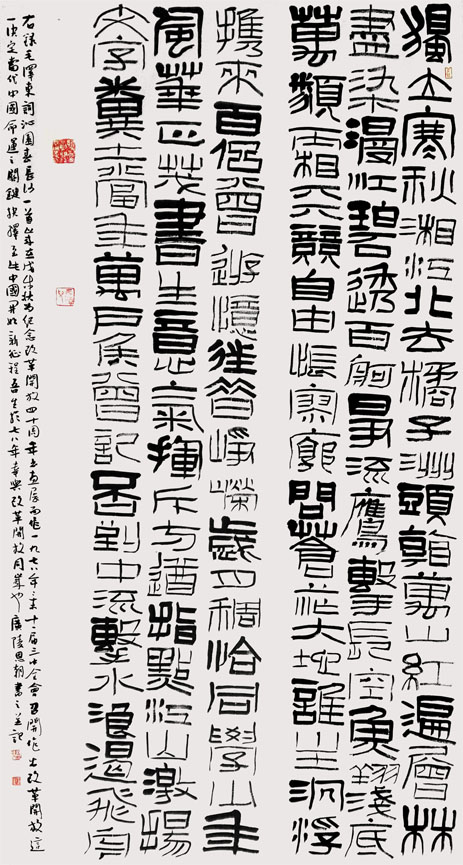 獨立寒秋湘江北去橘子洲頭看萬山紅遍層林
盡染漫江碧透百舸爭流鷹擊長空魚翔淺底
萬類霜天競自由悵寥廓問蒼茫大地誰主沉浮
攜來百侶曾遊憶往昔崢嶸歲月稠恰同學少年
風華正茂書生意氣揮斥方遒指點江山激揚
文字糞土當年萬戶侯曾記否到中流擊水浪遏飛舟
右錄毛澤東詞沁園春長沙一首歲在戊戌秋為紀念改革開放四十周年書畫展而作一九七八年十一屆三中全會召開作出改革開放這
一決定當代中國命運之關鍵抉擇至此中國開始新征程吾生於七八年幸與改革開放同歲也廣陵思朝書之並記